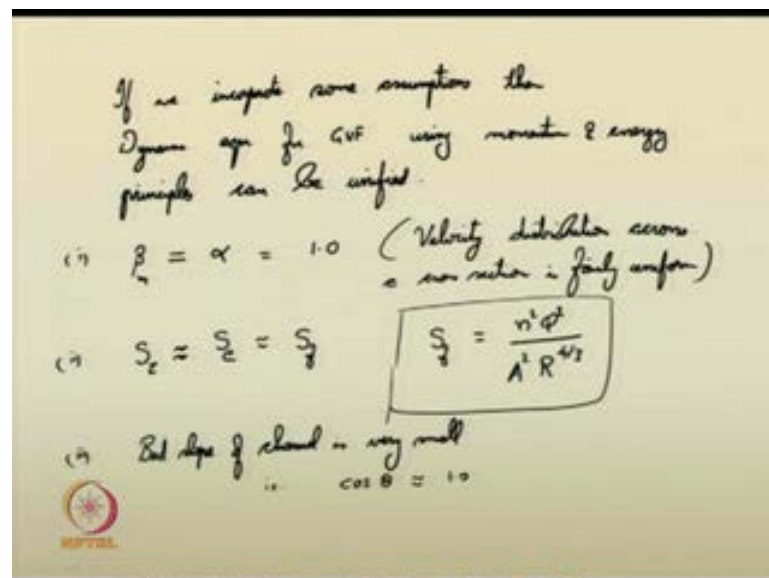 If we incorporate some assumptions then
Dynamic eqn for GVF using momentum & energy
principles can be unified.
(i) β = α = 1.0 (Velocity distribution across
a cross section is fairly uniform)
(ii) S ≈ S = S_f S_f = n²Q² / A² R^4/3
Bed slope of channel is very small
i.e. cos θ ≈ 1.0
NPTEL